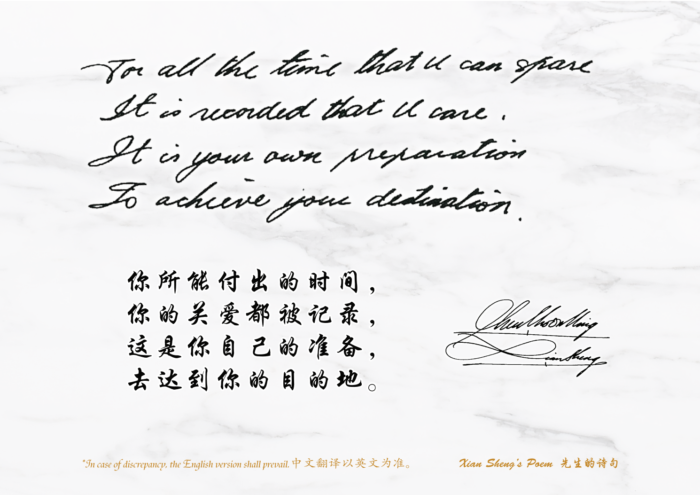 For all the time that U can spare
It is recorded that U care.
It is your own preparation
To achieve your destination.
你所能付出的时间，
你的关爱都被记录，
这是你自己的准备，
去达到你的目的地。
Xian Sheng
*In case of discrepancy, the English version shall prevail. 中文翻译以英文为准。
Xian Sheng's Poem 先生的诗句